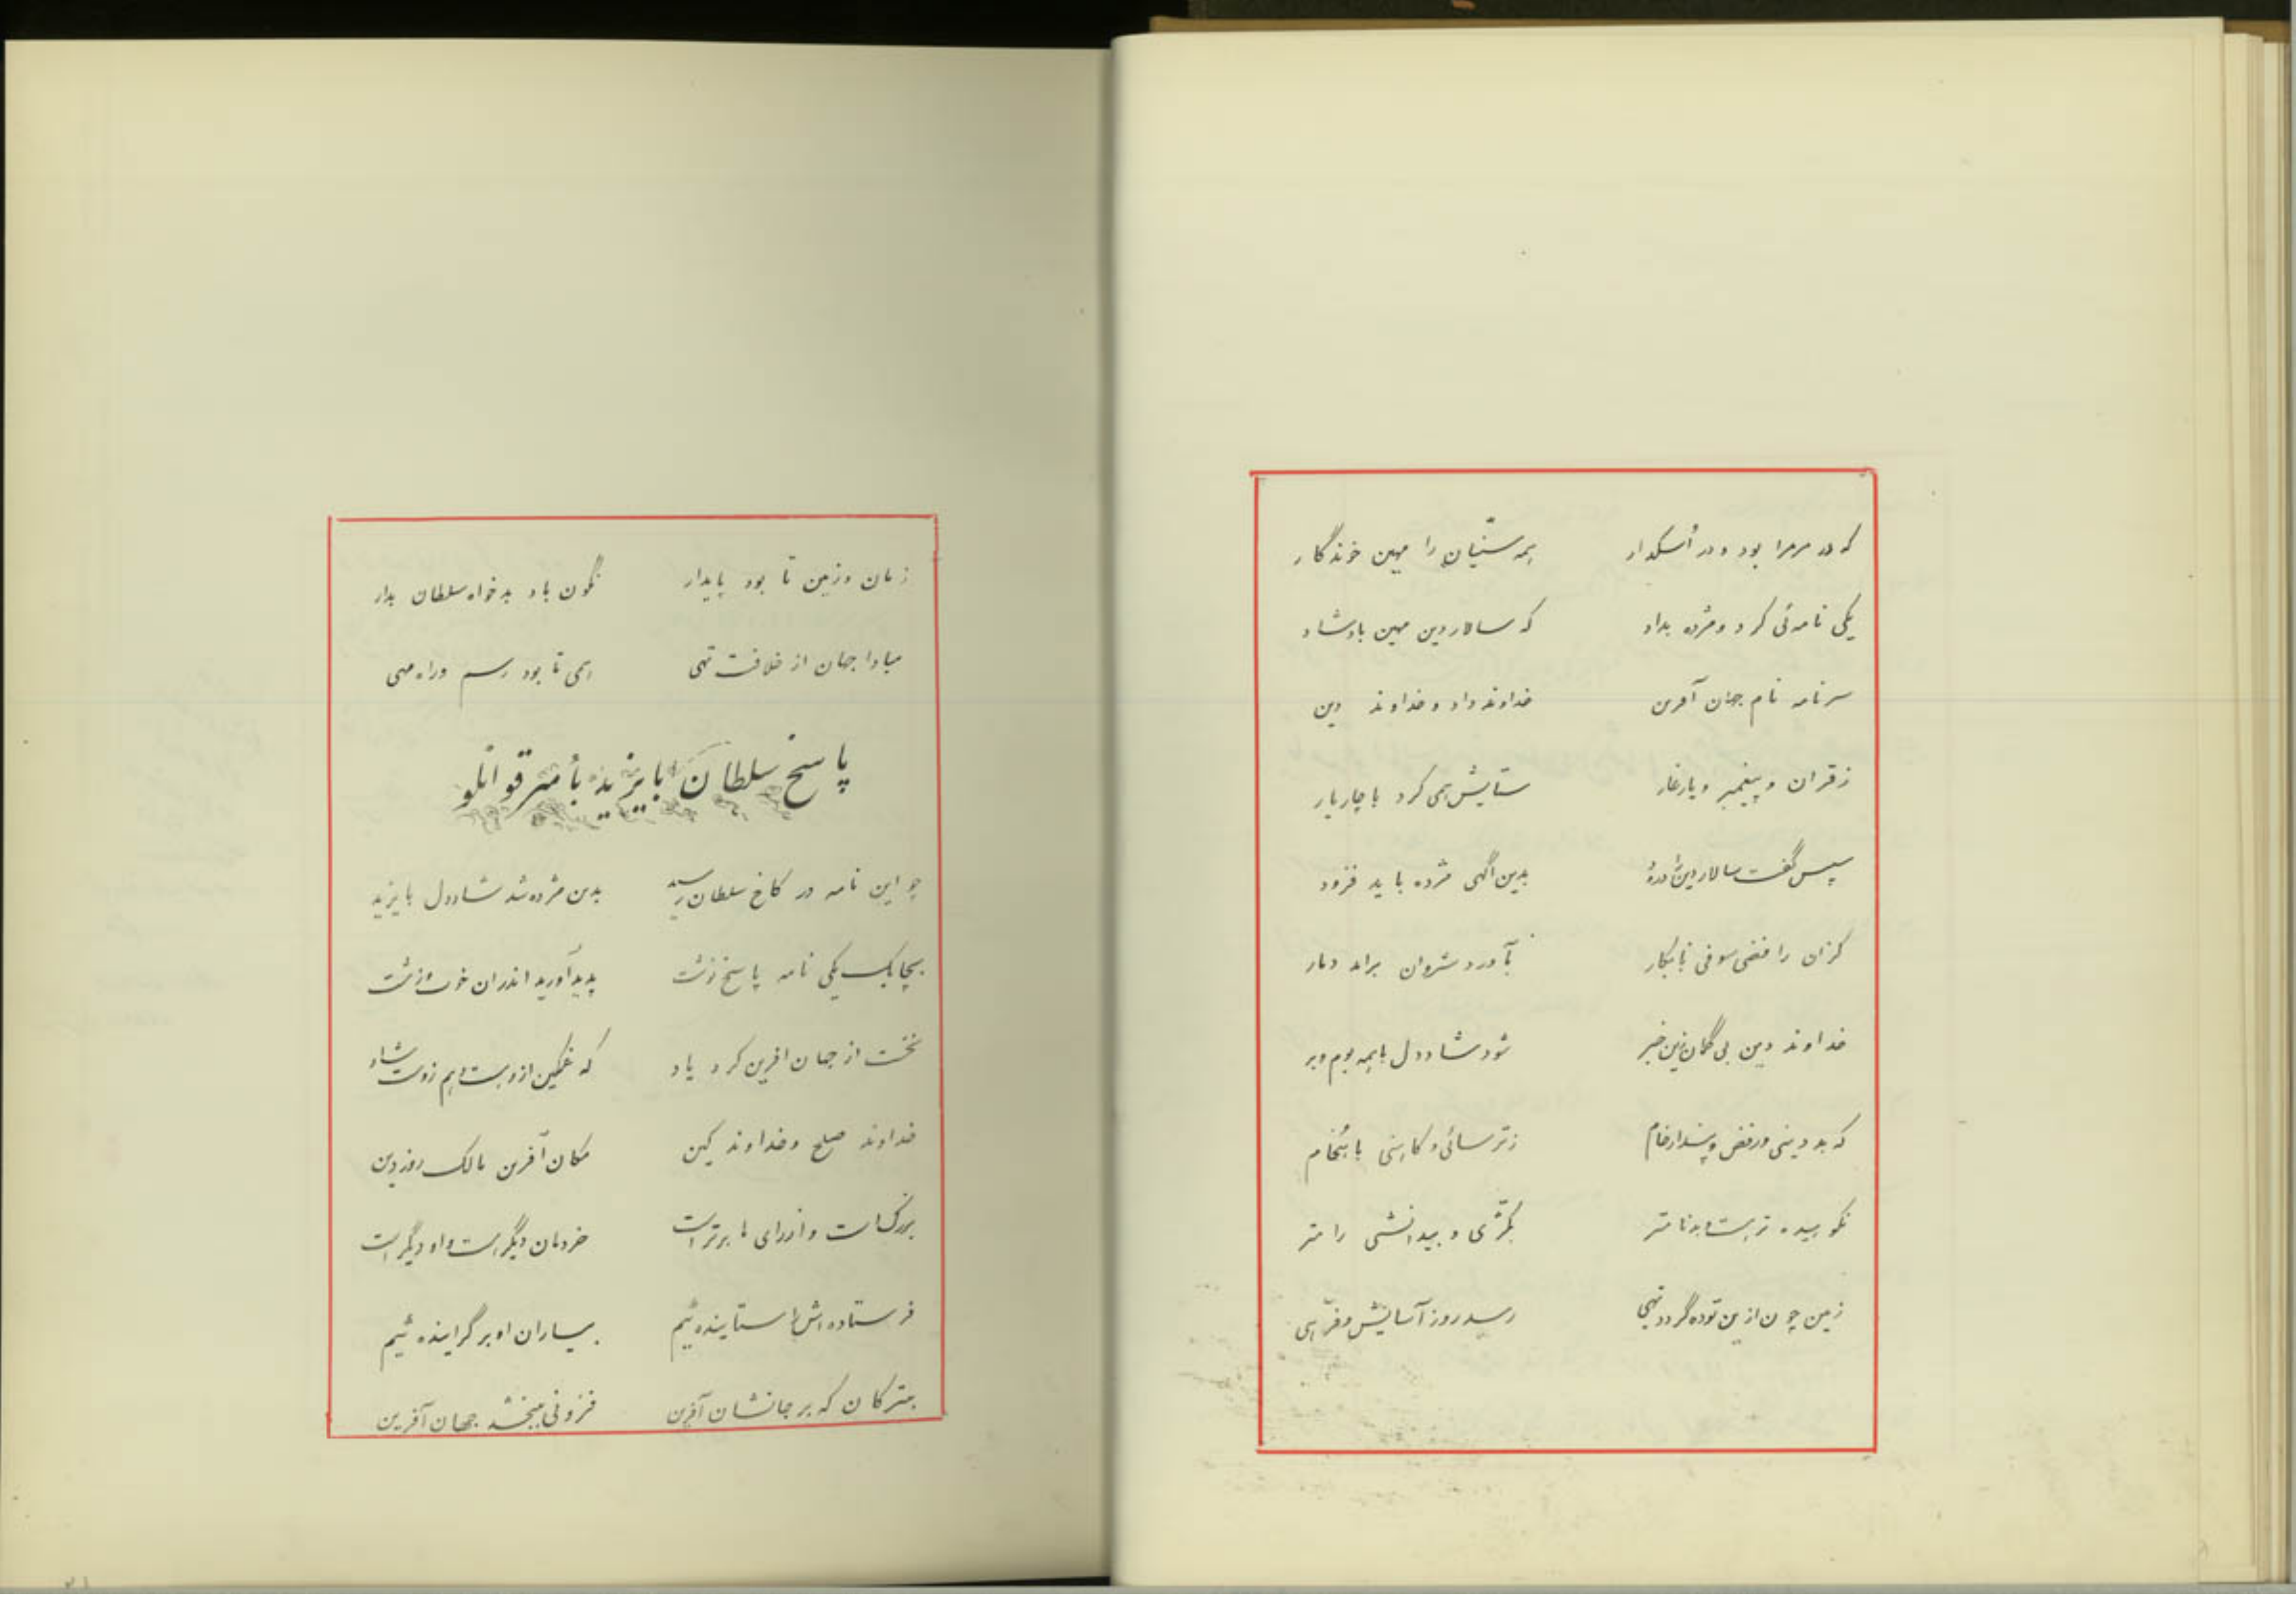 که در مرمرا بود و در اُسکدار همه سنّیان را مهین خوندگار
یکی نامه‌ئی کرد و مژده بداد که سالار دین مهین بادشاد
سرنامه نام جهان آفرین خداوند داد و خداوند دین
ز قران و پیغمبر و یار غار ستایش همی کرد با چار یار
سپس گفت سالار دین را درود بدین آگهی مژده باید فزود
کزان رافضی سوفی نابکار بآورد شروان برامد دمار
خداوند دین بی گمان زین خبر شود شاد دل با همه بوم و بر
که بد دینی و رفض و پندار خام ز ترسائی و کاهنی با
نکوهیده تر است و بدنامتر بکژّی و بیدانشی رامتر
زمین چون ازین توده گردد تهی رسد روز آسایش و فرّهی
زمان و زمین تا بود پایدار نگون باد بدخواه سلطان بدار
مبادا جهان از خلافت تهی همی تا بود رسم و راه مهی
پاسخ سلطان بایزید بأمیر قوانلو
چو این نامه در کاخ سلطان رسید بدین مژده شد شاددل بایزید
بچابک یکی نامه پاسخ نوشت پدید آورید اندران خوب و زشت
نخست از جهان افرین کرد یاد که غمگین ازو هست و هم زوست شاد
خداوند صلح و خداوند کین مکان آفرین مالک روز دین
بزرگ است و از رای ما برتر است خردمان دیگر است و او دیگر است
فرستاده‌اش را ستاینده‌ئیم بیاران او بر گراینده‌ئیم
بترکان که بر جانشان آفرین فزونی ببخشد جهان آفرین